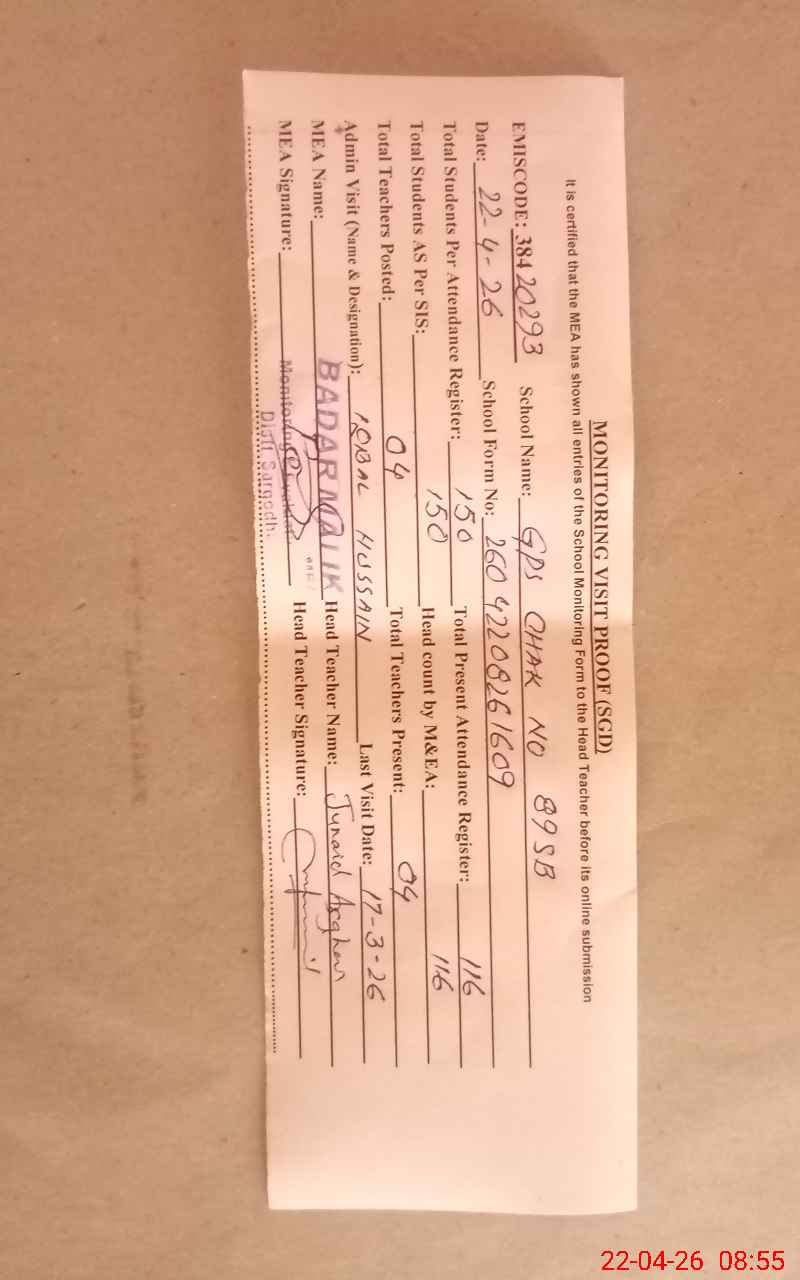 MONITORING VISIT PROOF (SGD)
It is certified that the MEA has shown all entries of the School Monitoring Form to the Head Teacher before its online submission
EMISCODE: 38420293 School Name: GPS CHAK NO 89 SB
Date: 22-4-26 School Form No: 26042208261609
Total Students Per Attendance Register: 150 Total Present Attendance Register: 116
Total Students AS Per SIS: 150 Head count by M&EA: 116
Total Teachers Posted: 04 Total Teachers Present: 04
Admin Visit (Name & Designation): IQBAL HUSSAIN Last Visit Date: 17-3-26
MEA Name: BADAR MALIK Head Teacher Name: Junaid
MEA Signature: Monitoring Head Teacher Signature:
Distt Sargodh.
22-04-26 08:55